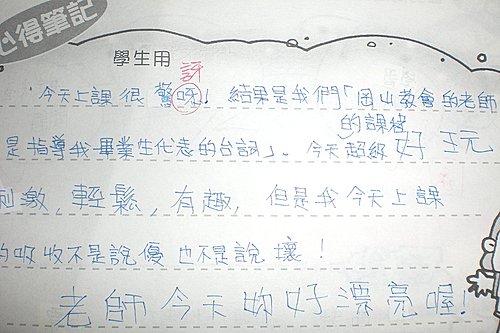 心得筆記
學生用
訝
今天上課很驚呀! 結果是我們「岡山教會的老師
的課後
是指導我畢業生代表的台詞」。今天超級好玩
刺激,輕鬆,有趣,但是我今天上課
的吸收不是說優也不是說壞!
老師今天妳好漂亮喔!